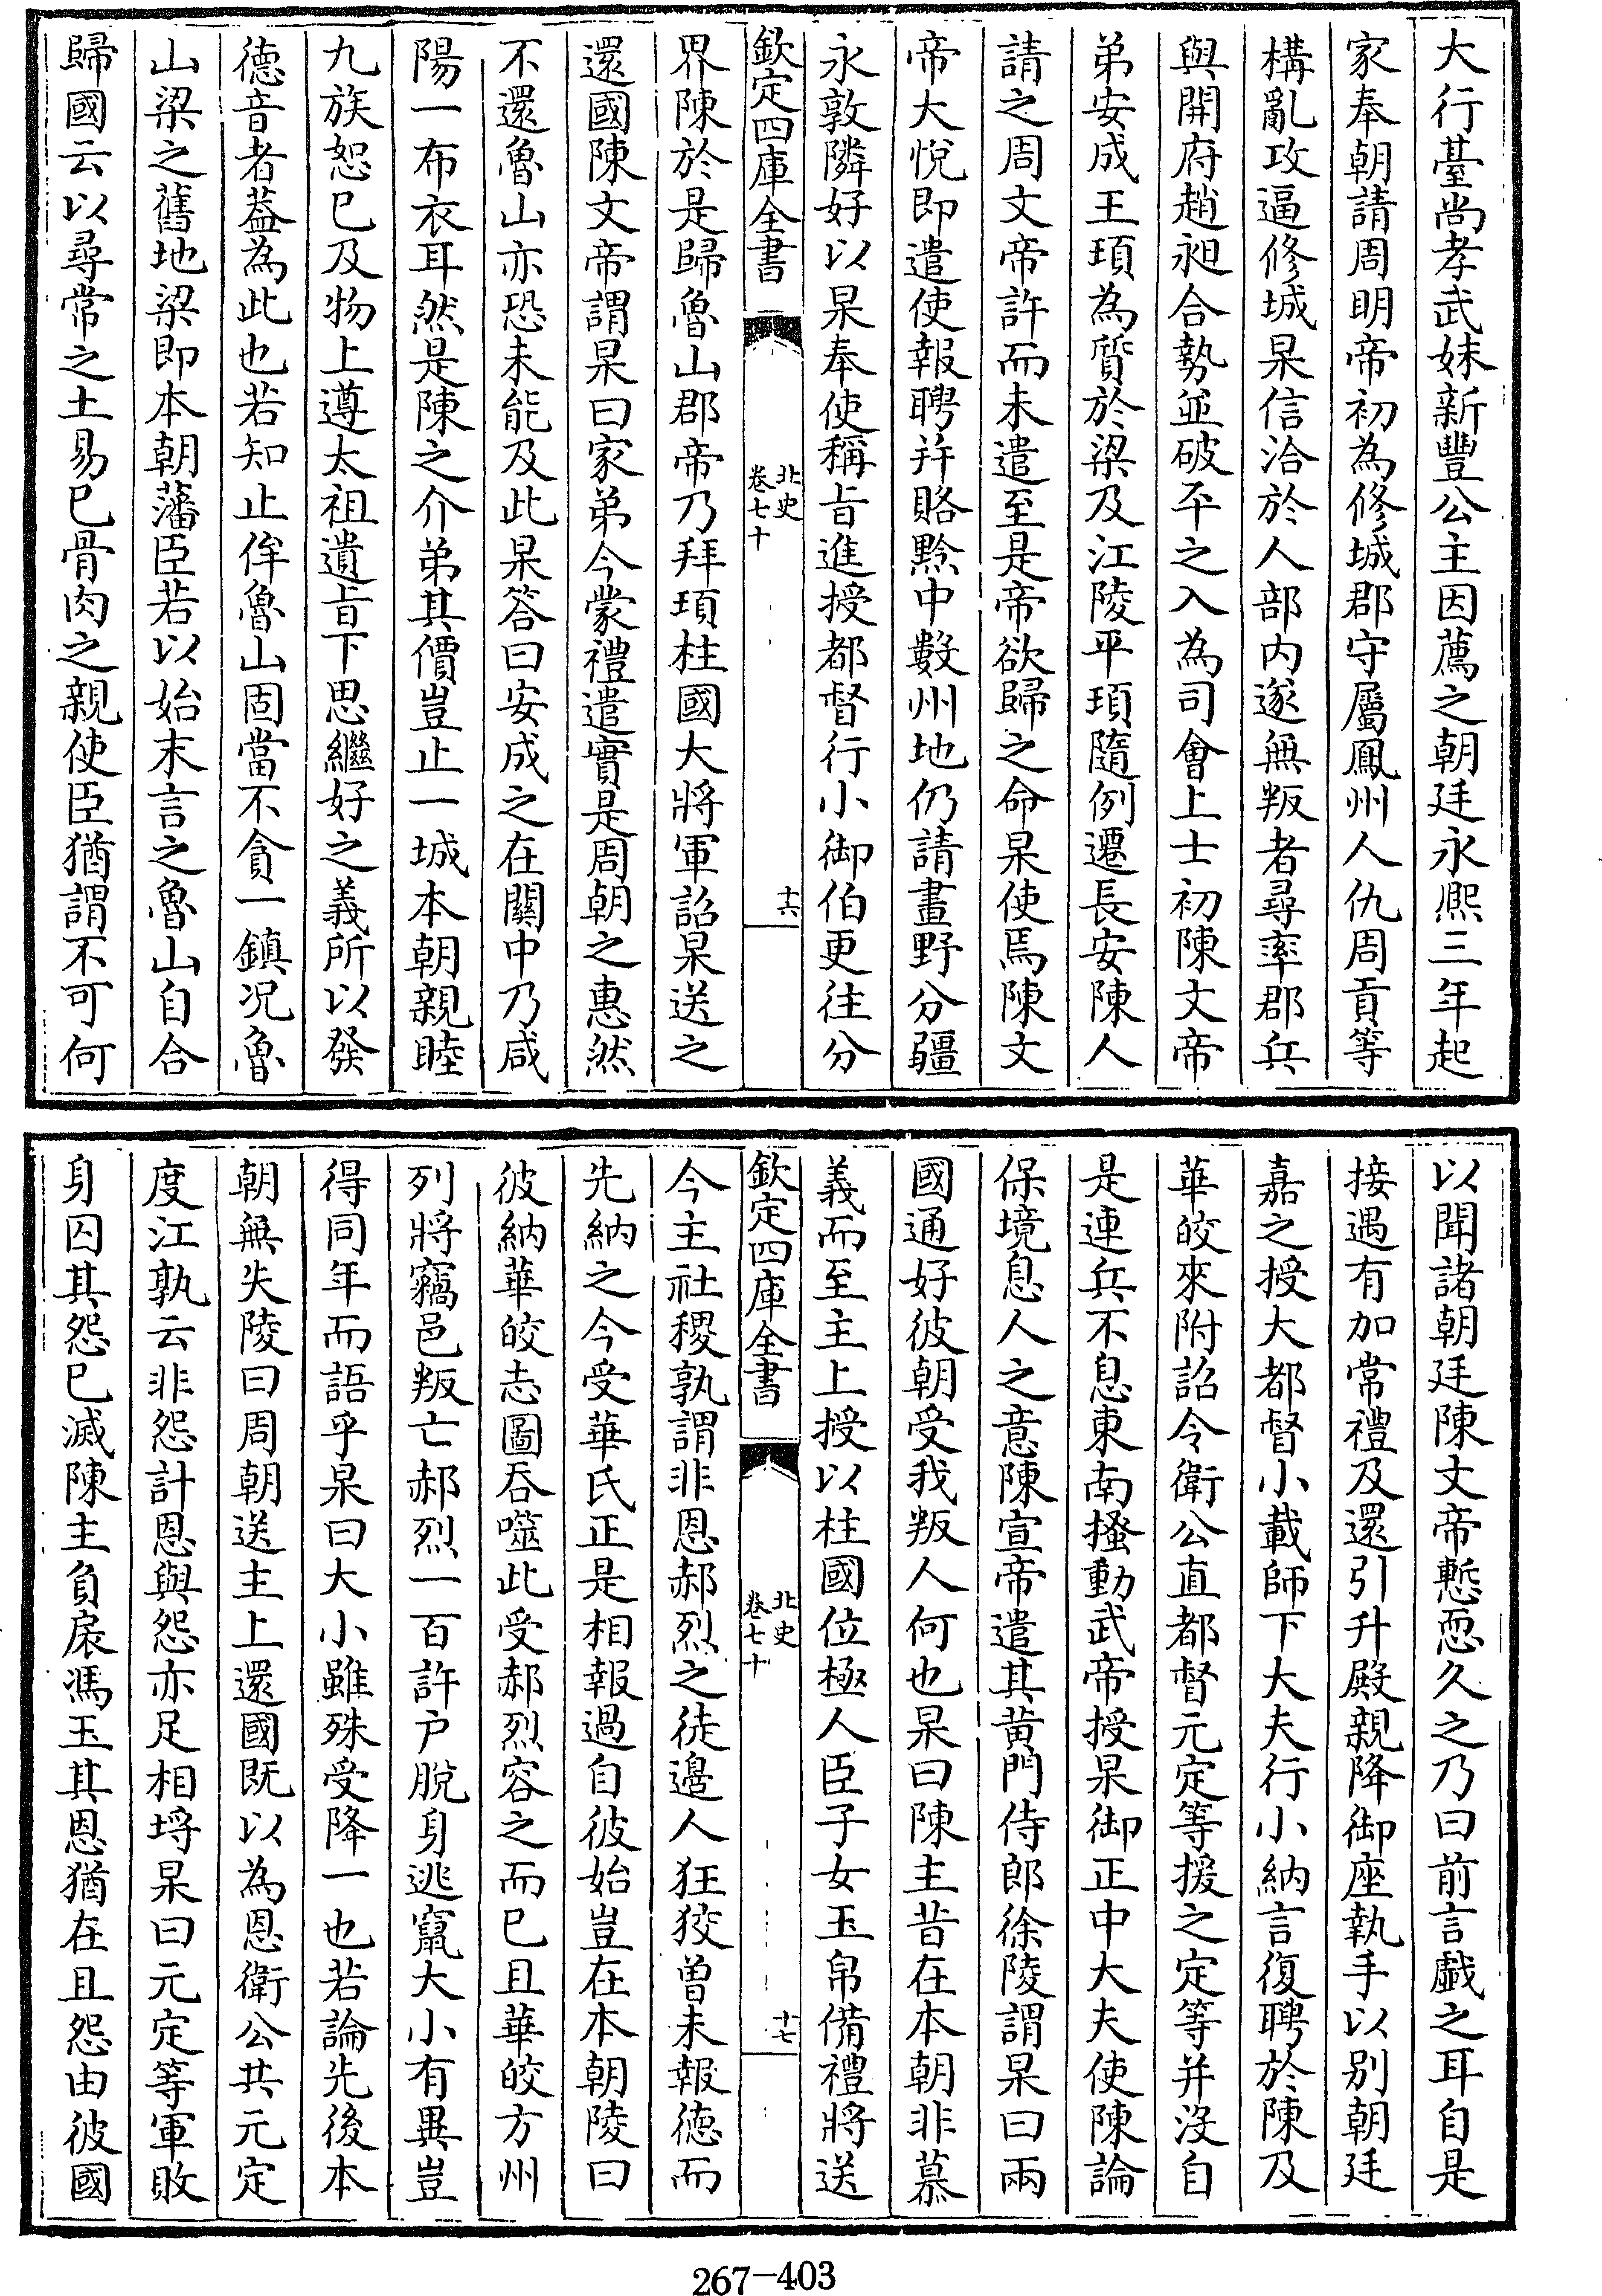 大行臺尚孝武妹新豐公主因薦之朝廷永熈三年起
家奉朝請周明帝初為修城郡守屬鳳州人仇周貢等
構亂攻逼修城杲信洽於人部内遂無叛者尋率郡兵
與開府趙昶合勢並破平之入為司會上士初陳文帝
弟安成王頊為質於梁及江陵平頊隨例遷長安陳人
請之周文帝許而未遣至是帝欲歸之命杲使焉陳文
帝大悅即遣使報聘并賂黔中數州地仍請畫野分疆
永敦隣好以杲奉使稱旨進授都督行小御伯更往分
欽定四庫全書
北史
卷七十
十六
界陳於是歸魯山郡帝乃拜頊柱國大將軍詔杲送之
還國陳文帝謂杲曰家弟今蒙禮遣實是周朝之惠然
不還魯山亦恐未能及此杲答曰安成之在關中乃咸
陽一布衣耳然是陳之介弟其價豈止一城本朝親睦
九族恕已及物上遵太祖遺旨下思繼好之義所以發
德音者葢為此也若知止侔魯山固當不貪一鎮况魯
山梁之舊地梁即本朝藩臣若以始末言之魯山自合
歸國云以尋常之土易已骨肉之親使臣猶謂不可何
以聞諸朝廷陳文帝慙恧久之乃曰前言戱之耳自是
接遇有加常禮及還引升殿親降御座執手以别朝廷
嘉之授大都督小載師下大夫行小納言復聘於陳及
華皎來附詔令衛公直都督元定等援之定等并沒自
是連兵不息東南搔動武帝授杲御正中大夫使陳論
保境息人之意陳宣帝遣其黄門侍郎徐陵謂杲曰兩
國通好彼朝受我叛人何也杲曰陳主昔在本朝非慕
義而至主上授以柱國位極人臣子女玉帛備禮將送
欽定四庫全書
北史
卷七十
十七
今主社稷孰謂非恩郝烈之徒邊人狂狡曽未報德而
先納之今受華氏正是相報過自彼始豈在本朝陵曰
彼納華皎志圖吞噬此受郝烈容之而已且華皎方州
列將竊邑叛亡郝烈一百許户脫身逃竄大小有異豈
得同年而語乎杲曰大小雖殊受降一也若論先後本
朝無失陵曰周朝送主上還國既以為恩衛公共元定
度江孰云非怨計恩與怨亦足相埒杲曰元定等軍敗
身囚其怨已滅陳主負扆馮玉其恩猶在且怨由彼國
267-403